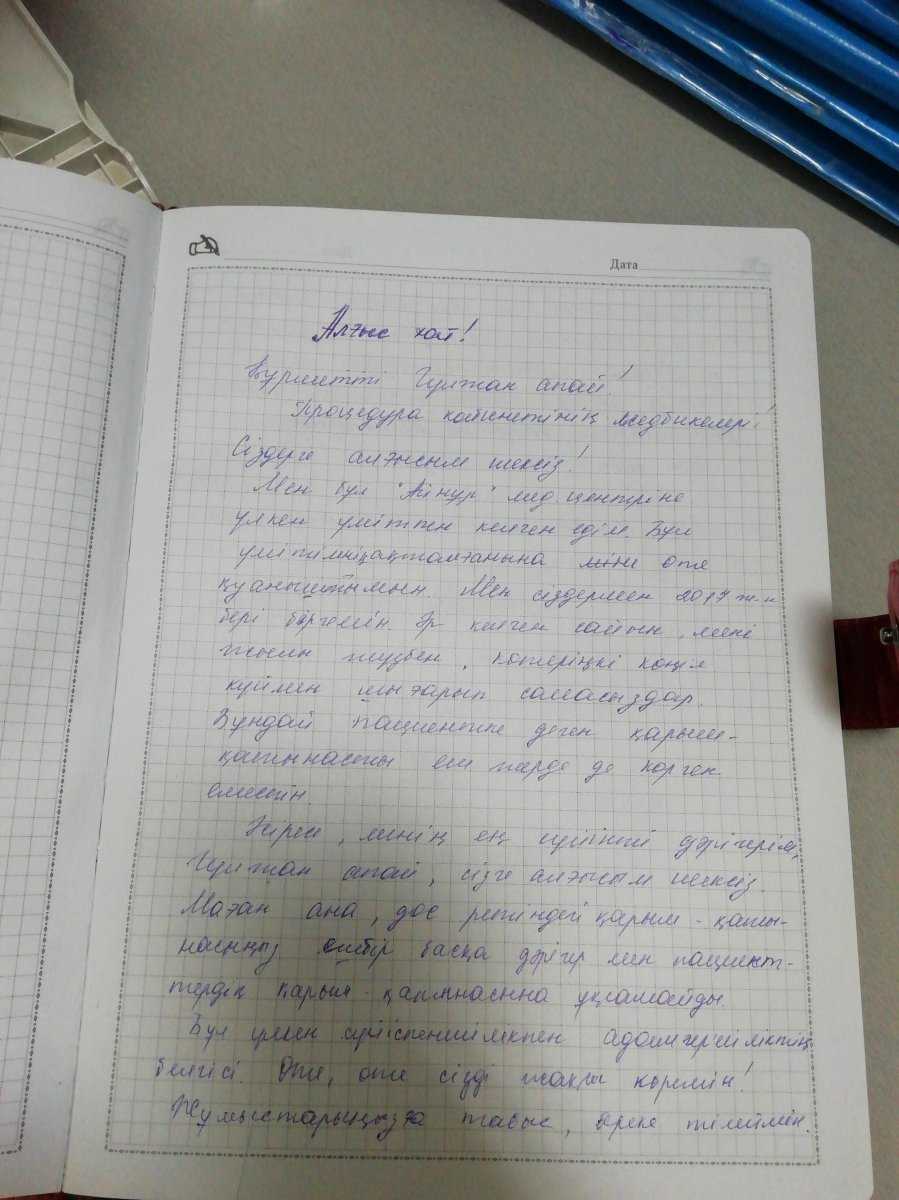 Дата
Алғыс хат!
Құрметті Гүлжан апай!
Процедура кабинетінің медбикелері!
Сіздерге алғысым шексіз!
Мен бұл "Айнұр" мед центріне
үлкен үмітпен келген едім. Бұл
үмітімніңақталғанына міне өте
қуаныштымын. Мен сіздермен 2017 ж-н
бері біргемін. Әр келген сайын, мені
жылы жүзбен, көтеріңкі көңіл
күймен шығарып саласыздар.
Бұндай пациентке деген қарым-
қатынасты еш жерде де көрген
емеспін.
Әсіресе, менің ең сүйікті дәрігерім,
Гүлжан апай, сізге алғысым шексіз.
Маған ана, дос ретіндегі қарым-қаты-
насыңыз ешбір басқа дәрігер мен пациент-
тердің қарым-қатынасына ұқсамайды.
Бұл үлкен сүйіспеншілікпен адамгершіліктің
белгісі. Өте, өте сізді жақсы көремін!
Жұмыстарыңызға табыс, береке тілеймін.